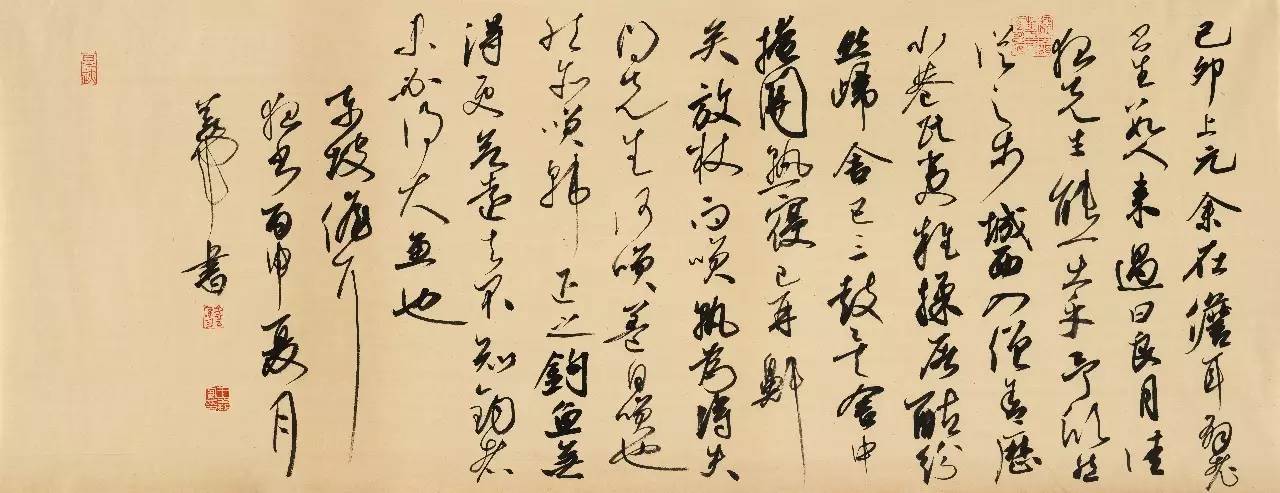 己卯上元余在儋耳有老
書生數人來過曰良月佳
夜先生能一出乎予欣然
從之步城西入僧舍歷
小巷民夷雜揉屠酤紛
然歸舍已三鼓矣舍中
掩關熟寢已再鼾
矣放杖而笑孰為得失
問先生何笑蓋自笑也
然亦笑韓退之釣魚無
得更欲遠去不知釣者
未必得大魚也
東坡儋耳
夜書丙申夏月
義軍書